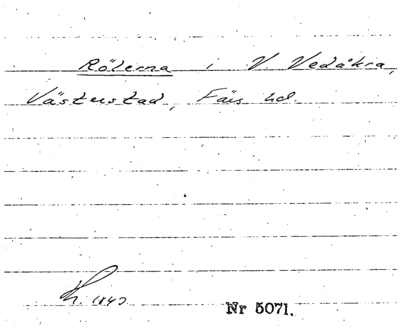 Rölerna i V. Vedåkra,
Västerstad, Färs hd.
1840
Nr 5071.